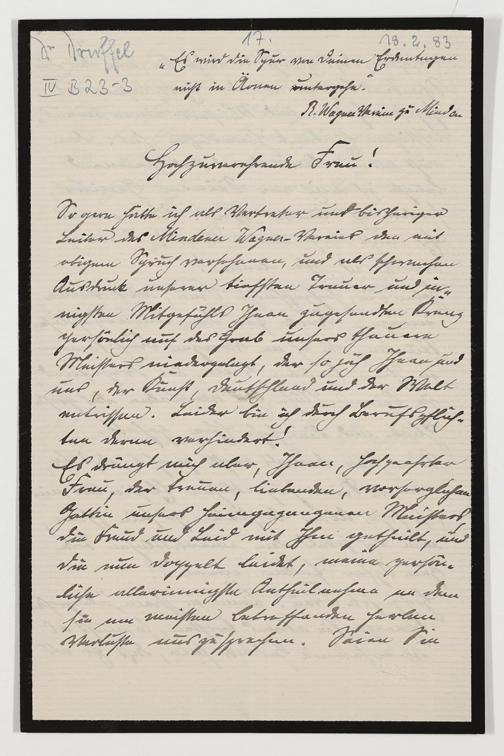 Dr Dreiffel 17. 18.2.83
IV B 23-3
„Es wird die Spur von Deinen Erdentagen
nicht in Äonen untergehn."
R. Wagner Verein zu Minden
Hochzuverehrende Frau!
So gern hätte ich als Vertreter und bisheriger
Leiter des Mindener Wagner-Vereins den mit
obigem Spruch versehenen, und als schwachen
Ausdruck unserer tiefsten Trauer und in-
nigsten Mitgefühls Ihnen zugesandten Kranz
persönlich auf das Grab unsers theuern
Meisters niedergelegt, der so jäh Ihnen und
uns, der Kunst, Deutschland und der Welt
entrissen. Leider bin ich durch Berufspflich-
ten daran verhindert!
Es drängt mich aber, Ihnen, hochgeehrte
Frau, der treuen, liebenden, vorsorglichen
Gattin unsers heimgegangenen Meisters
die Freud und Leid mit Ihm getheilt, und
die nun doppelt leidet, meine persön-
liche allerinnigste Antheilnahme an dem
sie am meisten betreffenden herben
Verluste auszusprechen. Seien Sie